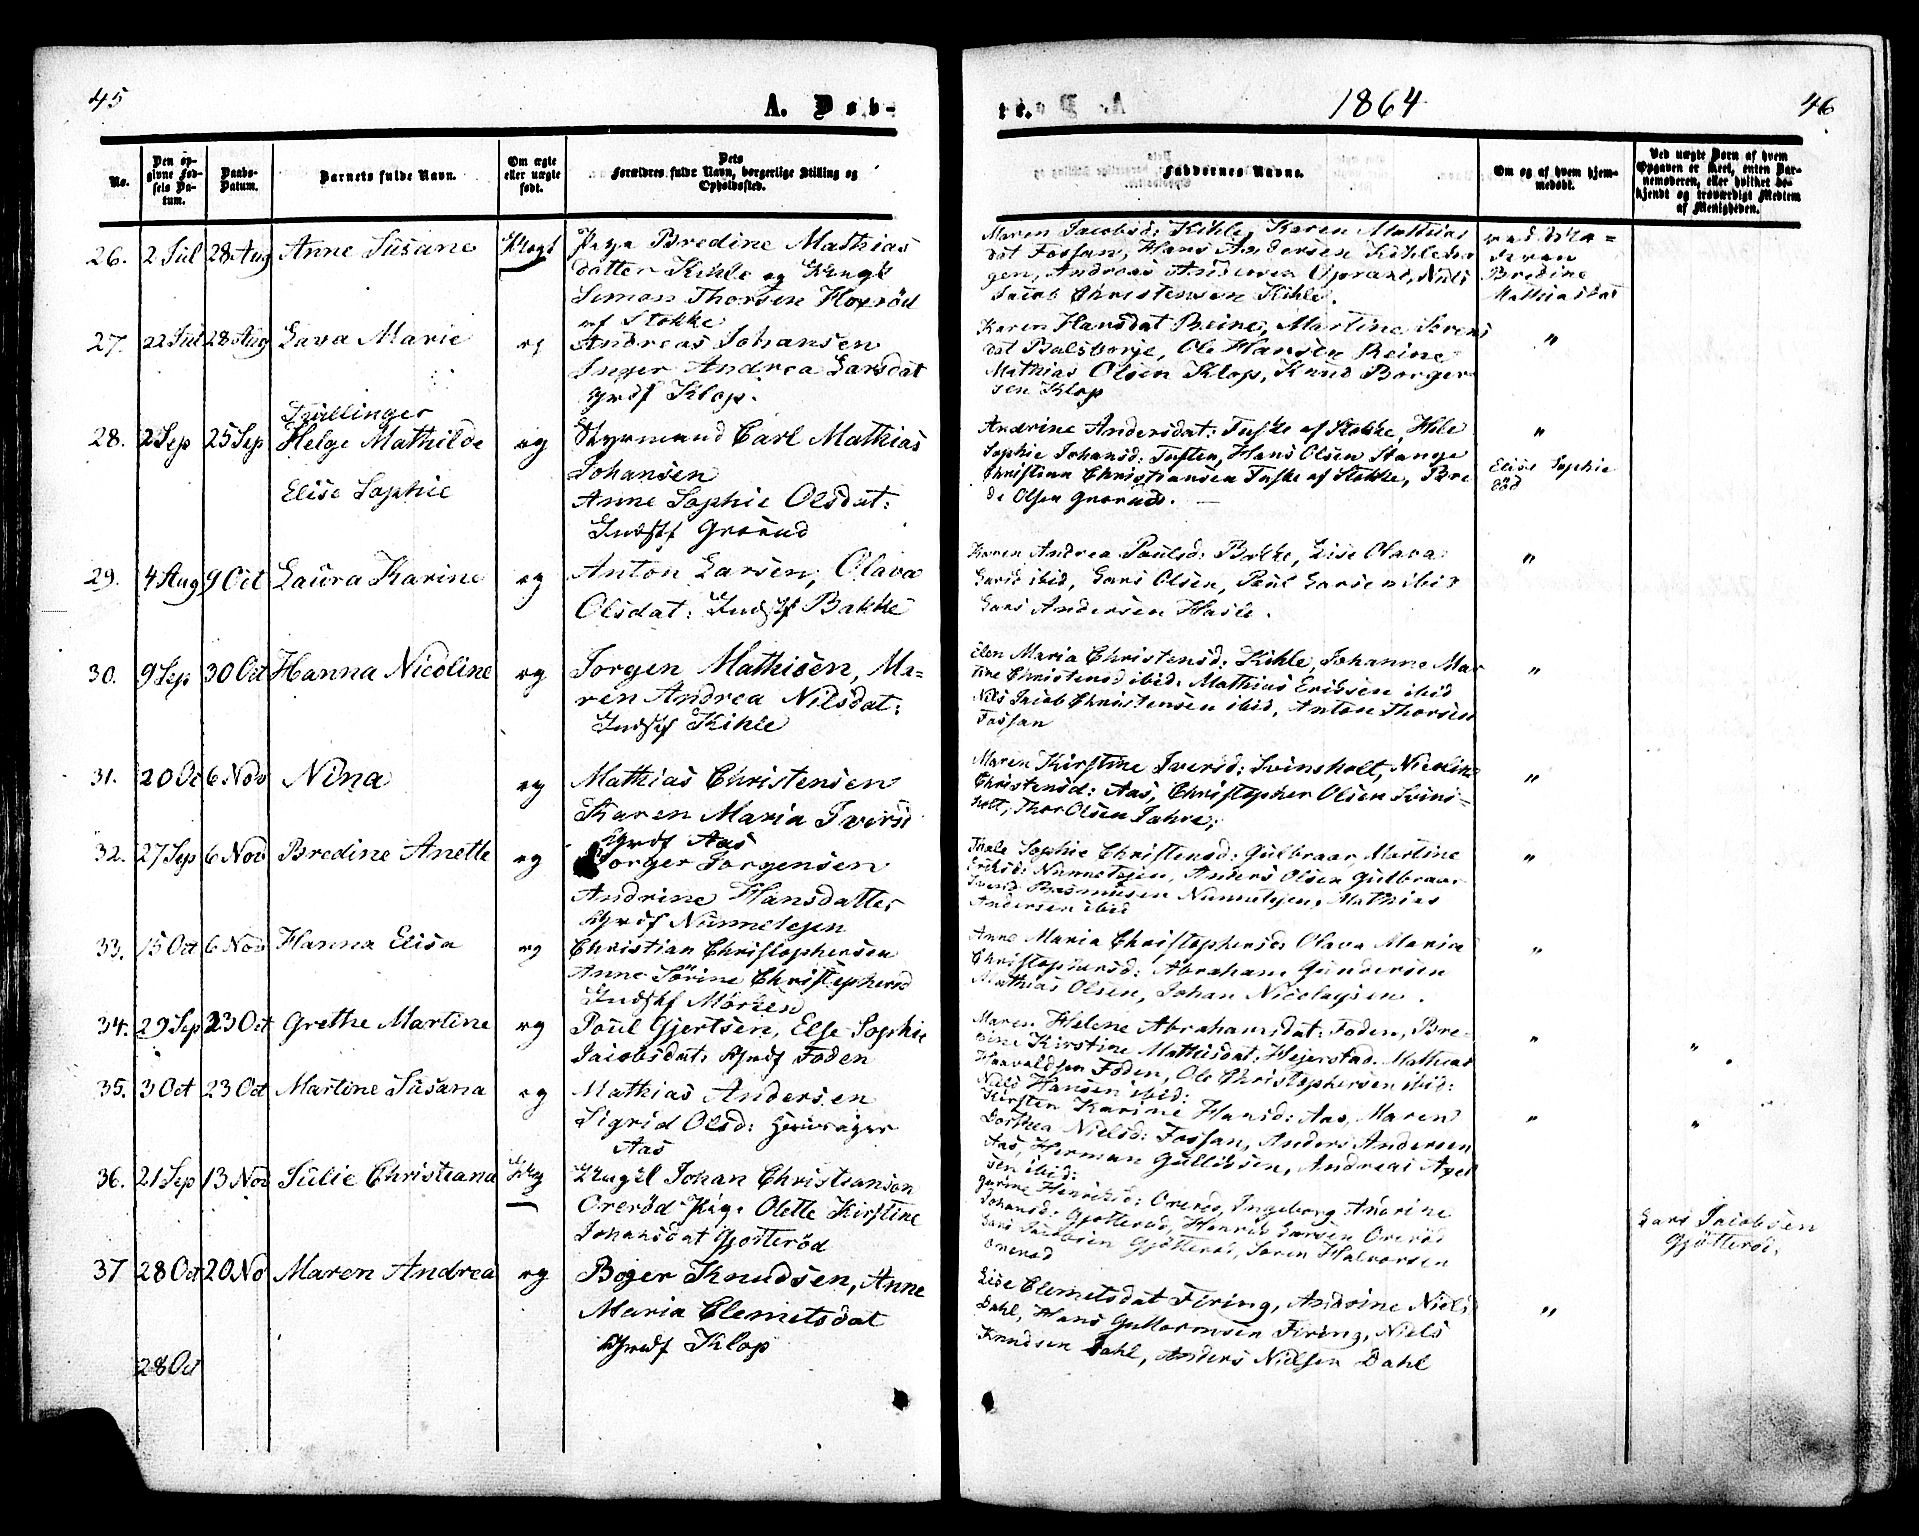 45
A. Døb-
te.
1864
46
No.
Den op-
givne Fød-
sels Da-
tum.
Daabs-
Datum.
Barnets fulde Navn.
Om ægte
eller uægte
født.
Dets
Forældres fulde Navn, borgerlige Stilling og
Opholdssted.
Faddernes Navne.
Om og af hvem hjem-
medøbt.
Ved uægte Børn af hvem
Opgaven er skeet, enten Bar-
nemoderen, eller hvilket be-
kjendt og troværdigt Medlem
af Menigheden.
26. 2 Jul 28 Aug Anne Susane
Pige Bredine Mathias
datter Kihle og Ungk
Simon Thorsen Hoxrød
af Stokke
Maren Jacobsd: Kihle, Karen Mathias
dat Fossan, Hans Andersen Kihleha
gen, Andreas Andersen Nils
Jacob Christensen Kihle.
Bredine
Mathiasdat
27. 22 Jul 28 Aug Lava Marie eg
Andreas Johansen
Inger Andrea Larsdat
Grdf Klop.
Karen Hansdat Reine, Martine Sørens
dat Ole Hansen Reine
Mathias Olsen Klop, Knud Borger
sen Klop
"
Tvillinger
28. 2 Sep 25 Sep Helge Mathilde eg
Elise Sophie
Styrmand Carl Mathias
Johansen
Anne Sophie Olsdat:
Indstf Grorud
Andrine Andersdat: Tuske af Stokke, Hele
Sophie Johansd: Tuften, Hans Olsen Stange
Christian Christiansen Tuske af Stokke, Bre
de Olsen Grorud.
"
Elise Sophie
død
29. 4 Aug 9 Oct Laura Karine eg
Anton Larsen, Olava
Olsdat: Indstf Bakke
Karen Andrea Poulsd: Bakke, Lise Olava
Larsd ibid, Lars Olsen, Poul Larsen ibid
Lars Andersen Hasle.
"
30. 9 Sep 30 Oct Hanna Nicoline eg
Jørgen Mathisen, Ma-
ren Andrea Nilsdat:
Indstf Kihle
Elen Maria Christensd: Kihle, Johanne Mar
tine Christensd ibid: Mathias Eriksen ibid
Nils Jacob Christensen ibid, Anton Thorsen
Fossan
"
31. 20 Oct 6 Nov Nina eg
Mathias Christensen
Karen Maria Iversd
Grdf Aas
Maren Kirstine Iversd: Svinsholt, Nicolin
Christensd: Aas, Christopher Olsen Svins-
holt, Thor Olsen Jahre;
"
32. 27 Sep 6 Nov Bredine Anette eg
Jørgensen
Andrine Hansdatter
Grdf Nunnetejen
Thale Sophie Christensd: Gulbraar, Martine
Eriksd: Nunnetejen, Anders Olsen Gulbraar
Rasmussen Nunnetejen, Mathias
Andersen ibid
"
33. 15 Oct 6 Nov Hanna Elisa eg
Christian Christophersen
Anne Sørine Christophersd
Indstf Mørken
Anne Maria Christophersd: Olava Maria
Christophersd: Abraham Gundersen
Mathias Olsen, Johan Nicolaysen.
"
34. 29 Sep 23 Oct Grethe Martine eg
Poul Gjertsen, Else Sophie
Jacobsdat: Grdf Foden
Maren Helene Abrahamsdat: Foden, Bre-
dine Kirstine Mathisdat: Hejerstad Mathias
Haavaldsen Foden, Ole Christophersen ibid:
Niels Hansen ibid:
" "
35. 3 Oct 23 Oct Martine Susana eg
Mathias Andersen
Sigrid Olsd:
Aas
Kirsten Karine Hansd: Aas, Maren
Dorthea Nielsd: Fossan, Anders Andersen
Aas, Herman Gulliksen, Andreas Axel
sen ibid:
" "
36. 21 Sep 13 Nov Julie Christiana
Ungk Johan Christianson
Orerød Pig. Olette Kirstine
Johansdat Gjøtterød
Henriksd: Orerød, Ingeborg Andrine
Johansd: Gjøtterød, Henrik Larsen Orerød
Lars Jacobsen Gjøtterød, Søren Halvorsen
Orerød
Lars Jacobsen
Gjøtterød,
37 28 Oct 20 No Maren Andrea eg
Boger Knudsen, Anne
Maria Clemetsdat
Grdf Klop
Lise Clemetsdat Firing, Andrine Niels
Dahl, Hans Guttormsen Firing, Niels
Knudsen Dahl, Anders Nielsen Dahl
"
28 Oct